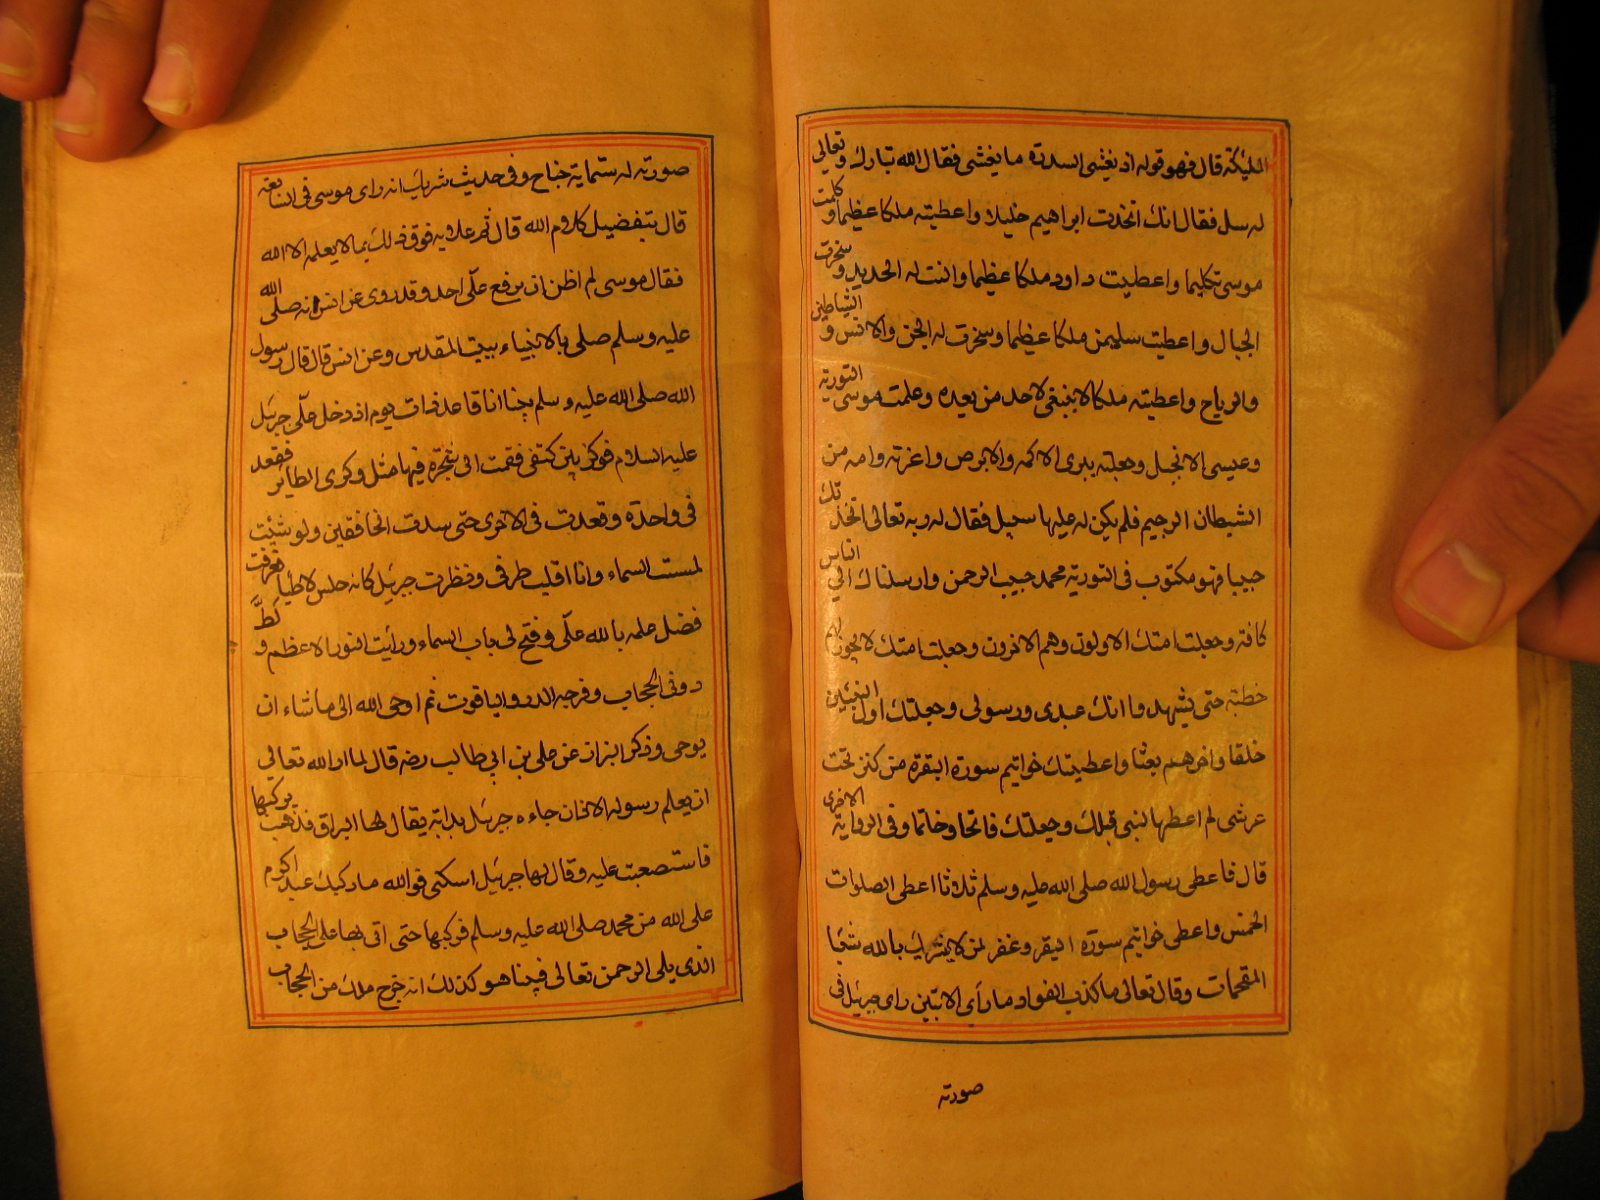 المليكة قال فهو قوله اذ يغشى السدرة ما يغشى فقال الله تبارك وتعالى
له سل فقال انك اتخذت ابراهيم خليلا واعطيته ملكا عظيما وكلمت
موسى تكليما واعطيت داود ملكا عظيما والنت له الحديد وسخرت
الجبال واعطيت سليمن ملكا عظيما وسخرت له الجن والانس و الشياطين
والرياح واعطيته ملكا لا ينبغي لاحد من بعده وعلمت موسى التورية
وعيسى الانجيل وجعلته يبرى الاكمه والابرص واعذته وامه من
الشيطان الرجيم فلم يكن له عليها سبيل فقال له ربه تعالى اتخذتك
حبيبا فهو مكتوب فى التورية محمد حبيب الرحمن وارسلناك الى الناس
كافة وجعلت امتك الاولون وهم الاخرون وجعلت امتك لا يجوز لهم
خطبة حتى يشهدوا انك عبدى ورسولى وجعلتك اول النبيين
خلقا واخرهم بعثا واعطيتك خواتيم سورة البقرة من كنز تحت
عرشى لم اعطها لنبى قبلك وجعلتك فاتحا وخاتما وفى الرواية الاخرى
قال فاعطى رسول الله صلى الله عليه وسلم ثلاثا اعطى الصلوات
الخمس واعطى خواتيم سورة البقر وغفر لمن لا يشرك بالله شيئا
المقحمات وقال تعالى ما كذب الفواد ما راى الايتين راى جبرئيل فى
صورته
صورته له ستماية جناح وفى حديث شريك انه راى موسى فى السابعة
قال بتفضيل كلام الله قال ثم علا به فوق ذلك بما لا يعلمه الا الله
فقال موسى لم اظن ان يرفع علّى احد وقد روى عن انس انه صلى الله
عليه وسلم صلى بالانبياء ببيت المقدس وعن انس قال قال رسول
الله صلى الله عليه وسلم بينا انا قاعد ذات يوم اذ دخل علّى جبرئيل
عليه السلام فوكز بين كتفى فقمت الى شجرة فيها مثل وكرى الطاير فقعد
فى واحدة وقعدت فى الاخرى حتى سدت الخافقين ولو شئت
لمست السماء وانا اقلب طرفى ونظرت جبرئيل كانه حلس لاطيا فعرفت
فضل علمه بالله علّى وفتح لى باب السماء ورأيت النور الاعظم و لطّ
دونى الحجاب وفرجه الدر والياقوت ثم اوحى الله الى ما شاء ان
يوحى وذكر البزار عن على بن ابي طالب رضه قال لما اراد الله تعالى
ان يعلم رسوله الاذان جاءه جبرئيل بدابة يقال لها البراق فذهب يركبها
فاستصعبت عليه وقال لها جبرئيل اسكنى فوالله ما ركبك عبد اكرم
على الله من محمد صلى الله عليه وسلم فركبها حتى اتى بها على الحجاب
الذى يلى الرحمن تعالى فبينا هو كذلك انه خرج ملك من الحجاب